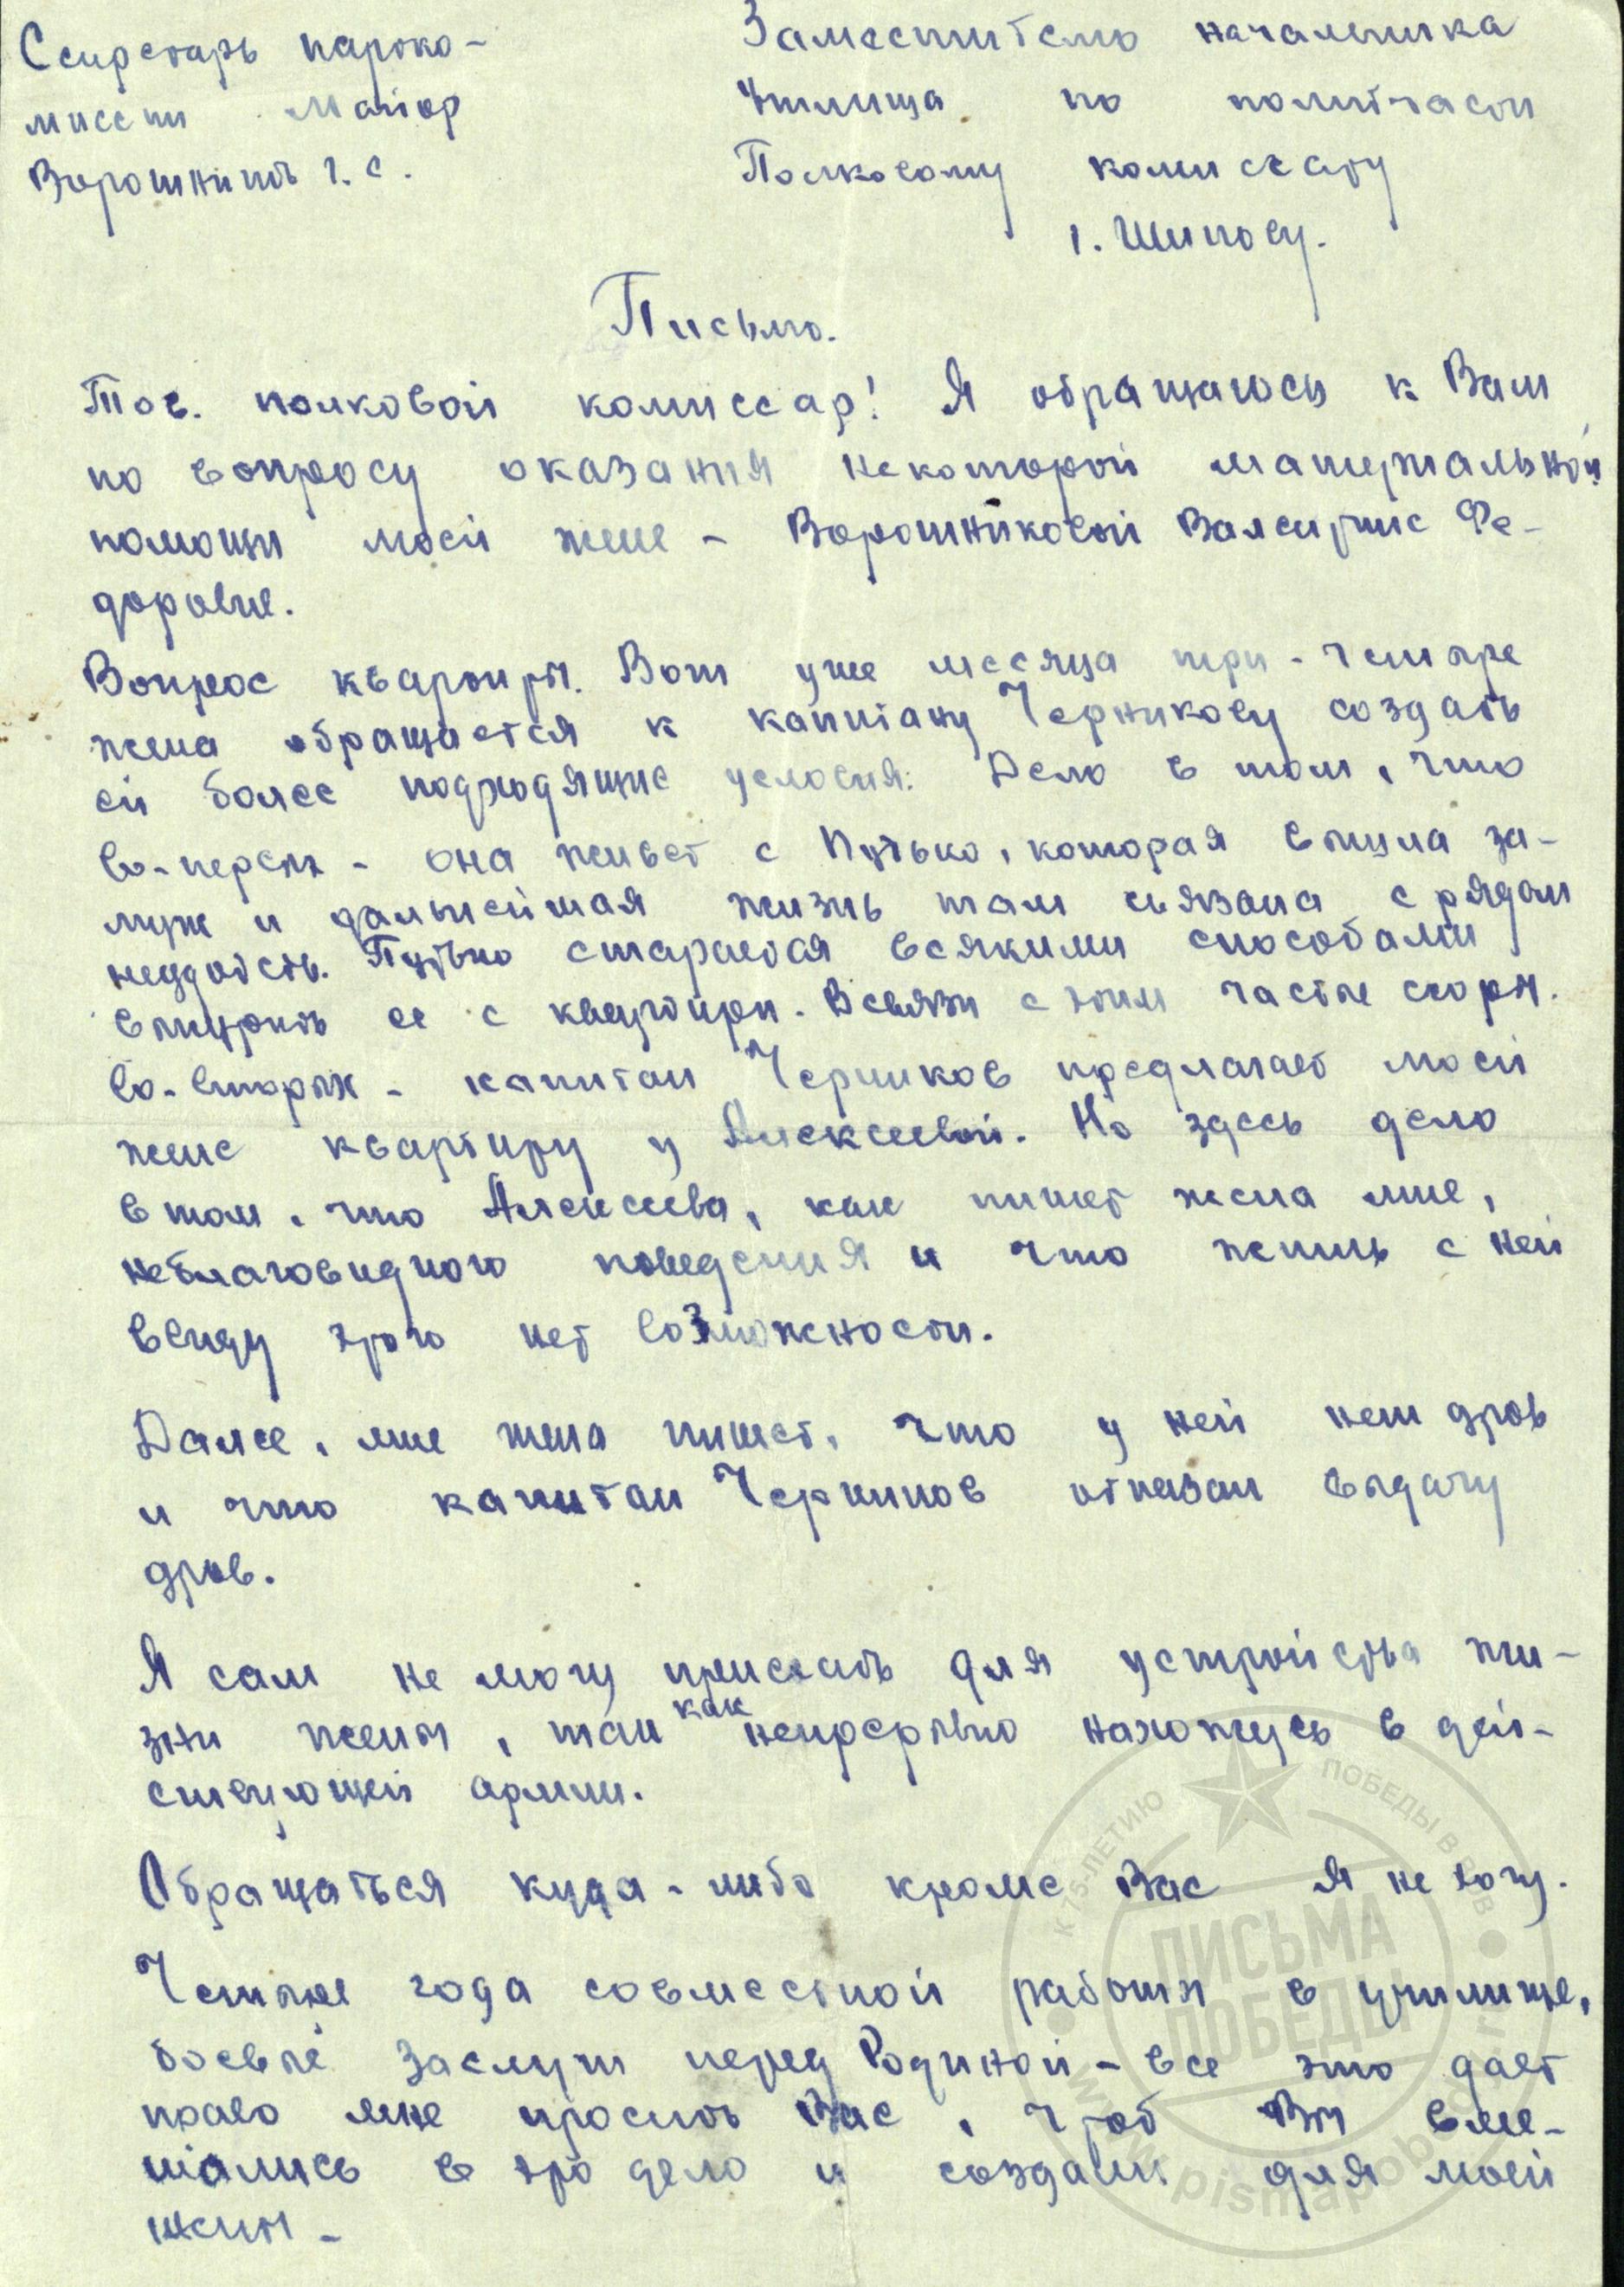 Секретарь партко-
миссии майор
Ворошнин Г. С.
Заместителю начальника
Училища по политчасти
Полковому комиссару
т. Шипову.
Письмо.
Тов. полковой комиссар! Я обращаюсь к Вам
по вопросу оказания некоторой материальной
помощи моей жене - Ворошниковой Валентине Фе-
доровне.
Вопрос квартиры. Вот уже месяца три-четыре
жена обращается к капитану Черникову создать
ей более подходящие условия: Дело в том, что
во-первых - она живет с Путько, которая вышла за-
муж и дальнейшая жизнь там связана с рядом
неудобств. Путько старается всякими способами
выжить ее с квартиры. В связи с этим частые споры.
Во-вторых - капитан Черников предлагает моей
жене квартиру у Алексеевой. Но здесь дело
в том, что Алексеева, как пишет жена мне,
неблаговидного поведения и что жить с ней
ввиду этого нет возможности.
Далее, мне жена пишет, что у ней нет дров
и что капитан Черников отказал выдачу
дров.
Я сам не могу приехать для устройства жи-
зни жены, так как непрерывно нахожусь в дей-
ствующей армии.
Обращаться куда-либо кроме Вас я не хочу.
Четыре года совместной работы в училище,
боевые заслуги перед Родиной - все это дает
право мне просить Вас, чтоб Вы вме-
шались в это дело и создали для моей
жены -
К 75-ЛЕТИЮ ПОБЕДЫ В ВОВ
ПИСЬМА
ПОБЕДЫ
www.pismapobedy.ru